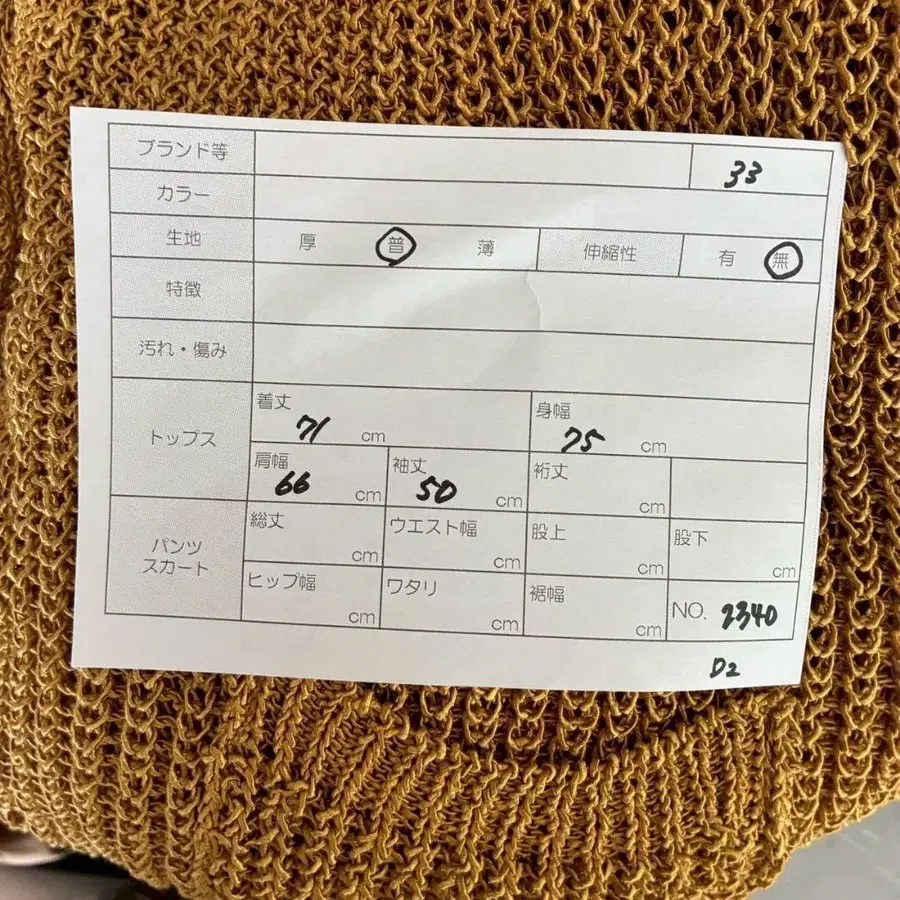 ブランド等 33
カラー
生地 厚 普 薄 伸縮性 有 無
特徴
汚れ・傷み
トップス
着丈 71 cm 身幅 75 cm
肩幅 66 cm 袖丈 50 cm 裄丈 cm
パンツ
スカート
総丈 cm ウエスト幅 cm 股上 cm 股下 cm
ヒップ幅 cm ワタリ cm 裾幅 cm NO. 2340
D2